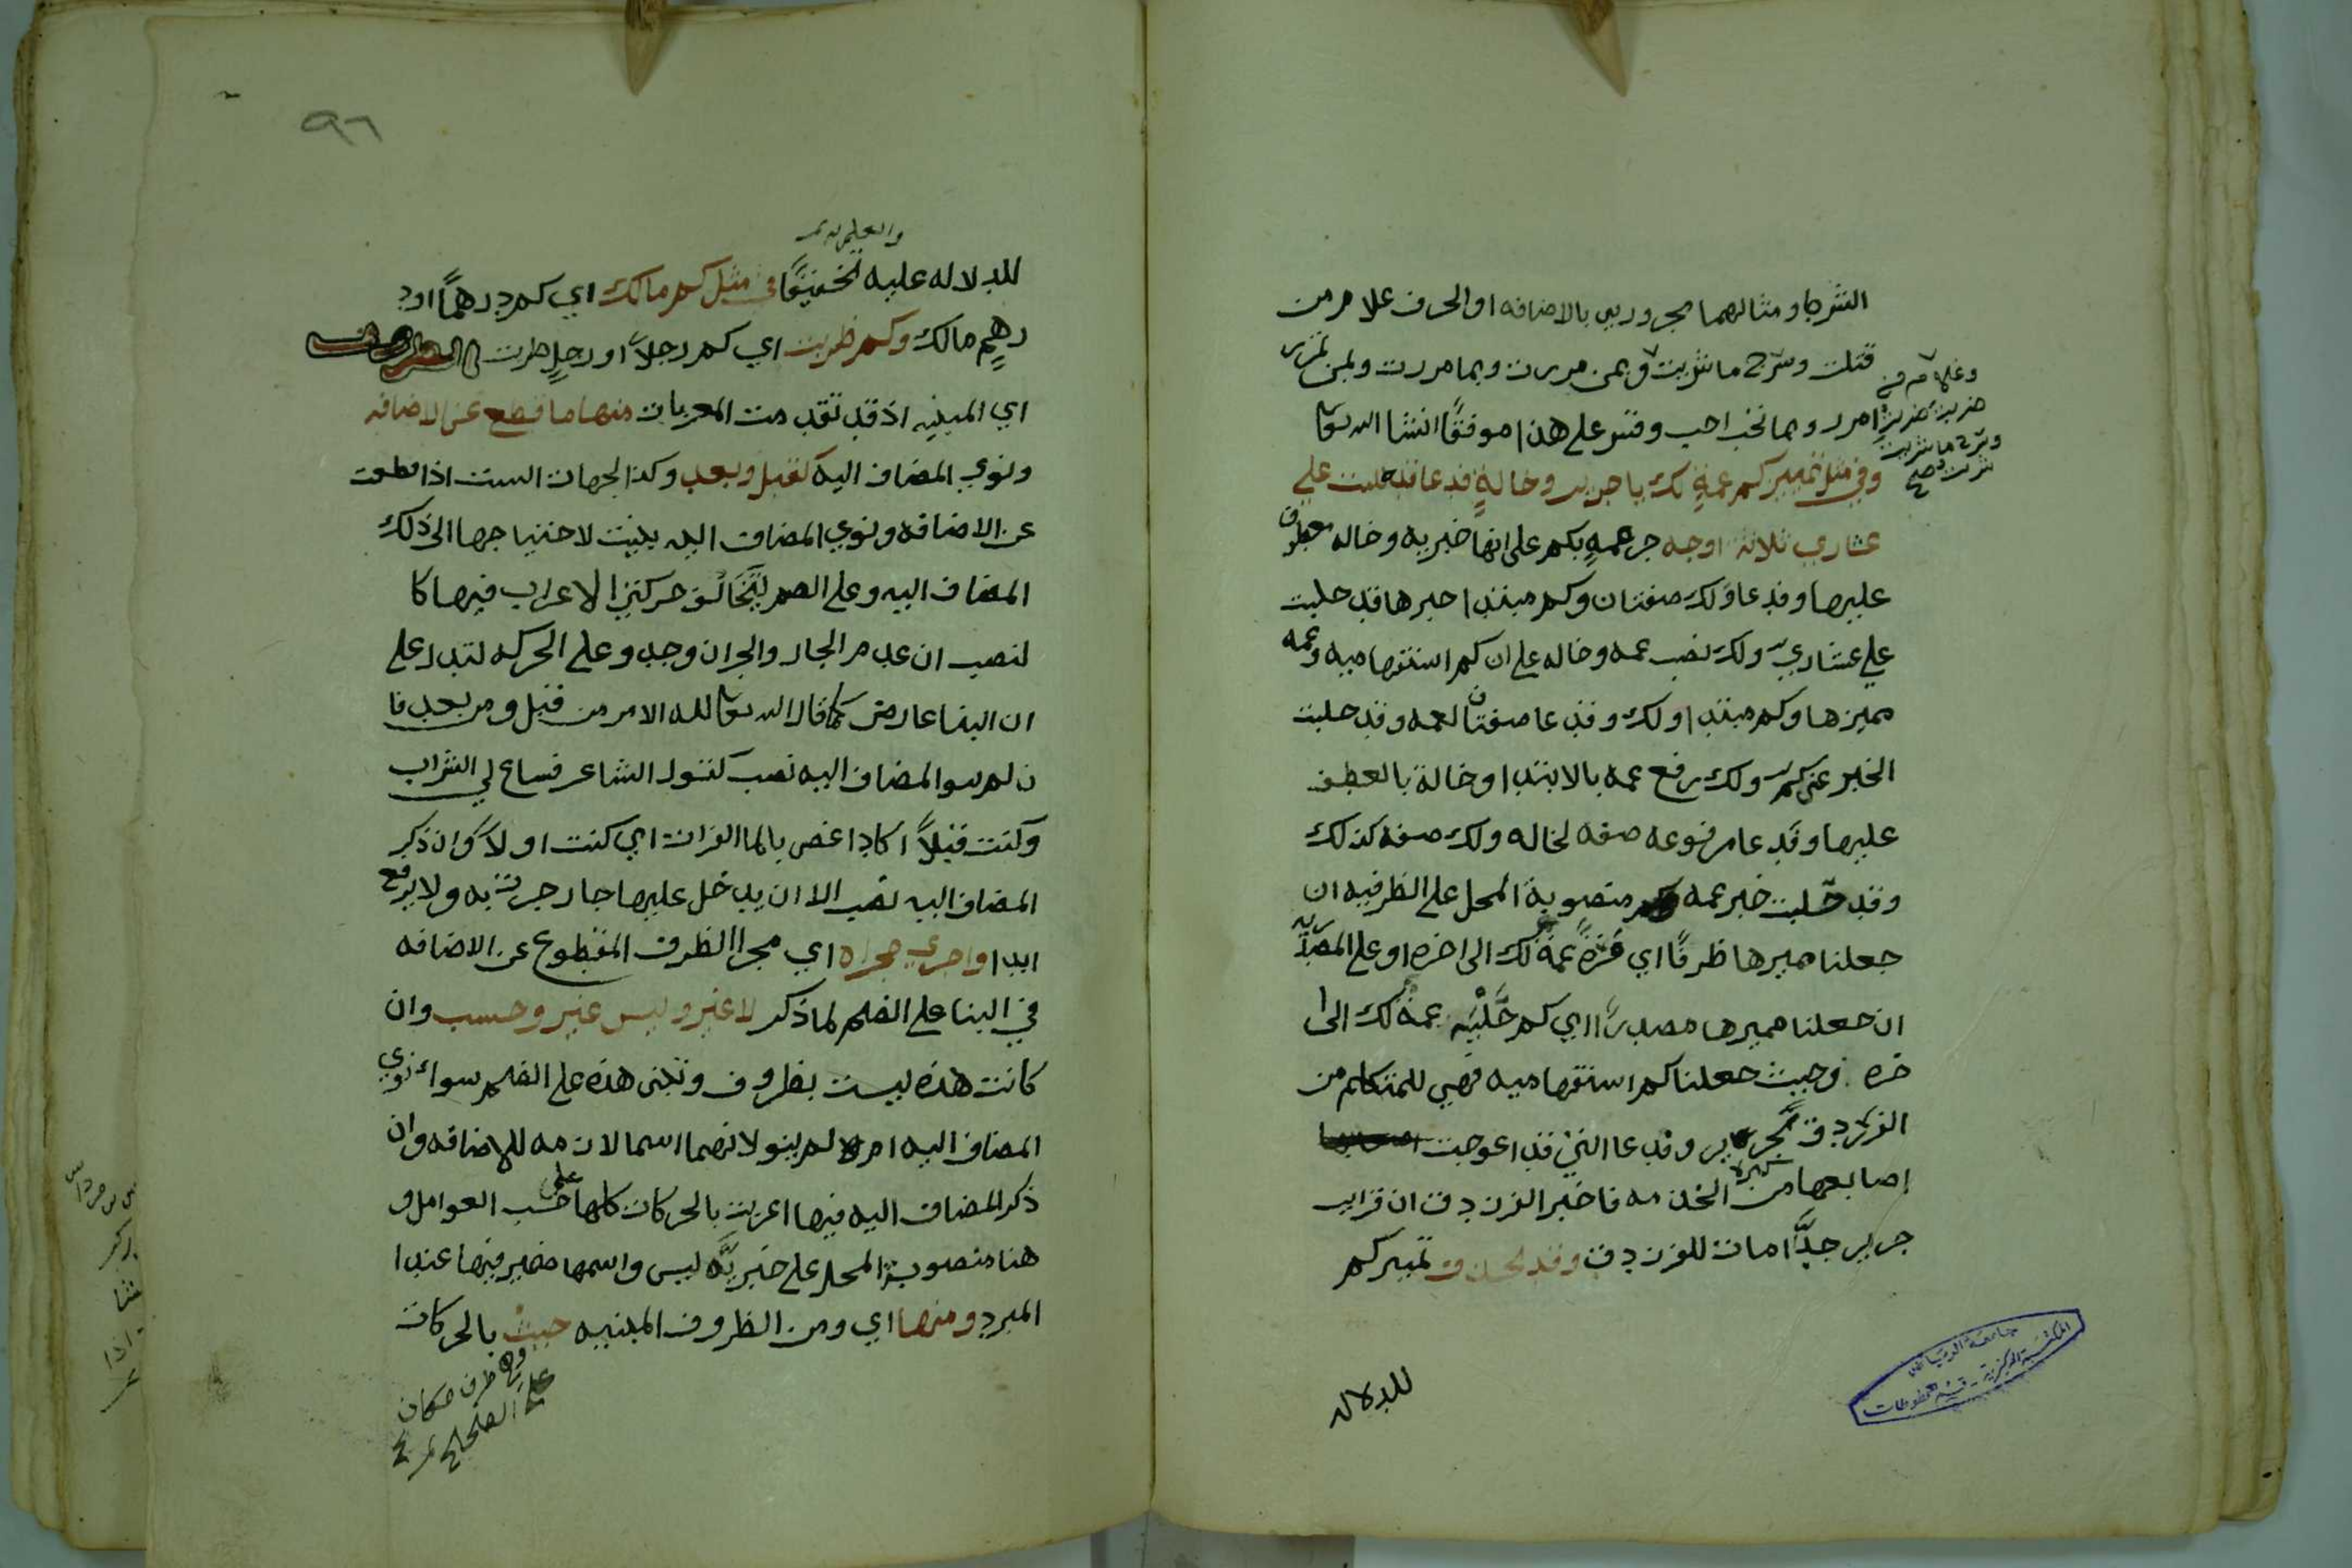 الشرط ومثالهما مجرورين بالاضافه او الحرف غلام من
قتلت وسرج ما شربت وبمن مررت وبما مررت وبمن تمرر
وغلام من
ضربت ضربت
وسرج ما شربت
شربت صح
امرر وبما تخب احب وقس على هذا موفقًا انشا الله تعا
وفي مثل تمييز كم عمةٍ لك يا جرير وخالةٍ فدعا قد حلبت علي
عشاري ثلاثة اوجه جر عمةٍ بكم على انها خبريه وخاله معطوف
عليها وفدعا ولك صفتان وكم مبتدا خبرها قد حلبت
علي عشاري ولك نصب عمه وخاله على ان كم استفهاميه وعمه
مميزها وكم مبتدا ولك وفدعا صفتان لعمه وقد حلبت
الخبر عن كم ولك رفع عمه بالابتدا وخالة بالعطف
عليها وفدعا مرفوعه صفه لخاله ولك صفه كذلك
وقد حَلبت خبر عمه وكم منصوبة المحل على الظرفيه ان
جعلنا مميزها ظرفًا اي كم مرةً عمة لك الى اخره او على المصدريه
ان جعلنا مميزها مصدرًا اي كم حَلْبَه عمةٌ لك الى ا
خره وحيث جعلنا كم استفهاميه فهي للتهكم من
الفرزدق بجرير وفدعا التي قد اعوجت
اصابعها من كثرة الخدمه فاخبر الفرزدق ان قرايب
جرير جدًّا امات للفرزدق وقد يحذف تمييز كم
للدلاله
٩٦
والعلم به تمـ
للدلاله عليه تخفيفًا في مثل كم مالك اي كم درهمًا اود
رهمٍ مالك وكم ضربت اي كم رجلاً او رجلٍ ضربت الظروف
اي المبنيه اذ قد تقدمت المعربات منها ما قطع عن الاضافه
ونوي المضاف اليه كقبل وبعد وكذا الجهات الست اذا قطعت
عن الاضافه ونوي المضاف اليه بنيت لاحتياجها الى ذلك
المضاف اليه وعلى الضم ليُخالف حركتي الاعراب فيها كا
لنصب ان عدم الجار والجر ان وجد وعلى الحركه لتدل على
ان البنا عارض كما قال الله تعا لله الامر من قبل ومن بعد فا
ن لم ينو المضاف اليه نصب كقول الشاعر فساغ لي الشراب
وكنت قبلاً اكاد اغص بالما الفرات اي كنت اولاً وان ذكر
المضاف اليه نصب الا ان يدخل عليها جار جرت به ولا يرفع
ابدا واجري مجراه اي مجرا الظرف المقطوع عن الاضافه
في البنا على الضم لما ذكر لا غير وليس غير وحسب وان
كانت هذه ليست بظروف وتبنى هذه على الضم سواء نوي
المضاف اليه ام لم ينو لانهما اسما لازمه للاضافه وان
ذكر المضاف اليه فيها اعربت بالحركات كلها على حسب العوامل و
هنا منصوبة المحل على خبريَّة ليس واسمها ضمير فيها عند ا
المبرد ومنها اي ومن الظروف المبنيه حيث بالحركات
وهي ظرف مكان
على الصحيح تمـ
جامعة الرياض
المكتبة المركزية - قسم المخطوطات